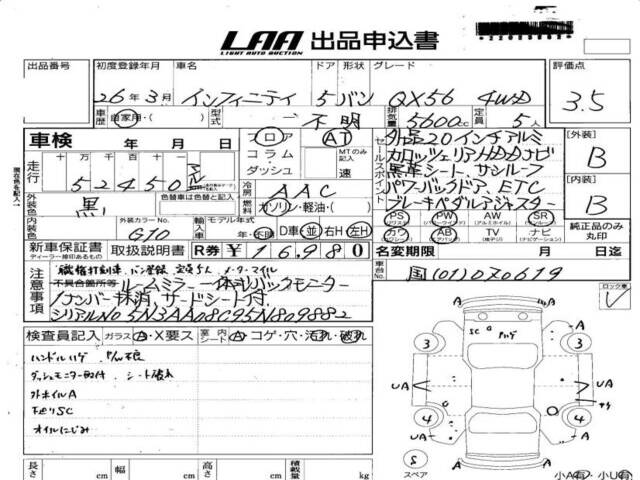 LAA 出品申込書
LIGHT AUTO AUCTION
出品番号 初度登録年月 車名 ドア 形状 グレード 評価点
26年3月 インフィニティ 5 バン QX56 4WD 3.5
車歴 自家用・( ) 型式 不明 排気量 5600cc 定員 5人
車検 年 月 日
フロア AT
コラム MTのみ記入
ダッシュ 速
セールスポイント
外品20インチアルミ
カロッツェリアHDDナビ
黒革シート、サンルーフ
パワーバックドア、ETC
ブレーキペダルアジャスター
外装 B
内装 B
走行 十 万 千 百 十
52450
外装色 黒 色替車は色替と記入
冷房 AAC
燃料 ガソリン・軽油・( )
PS PW AW SR
カワ AB TV ナビ
純正品のみ丸印
内装色 外装カラーNo. G10 輸入車 モデル年式 年・不明 D車・並 右H・左H
新車保証書 取扱説明書 R券 ¥16,980
ディーラー捺印あるもの
名変期限 月 日迄
現在色を記入
注意事項
職権打刻車、バン登録、定員5人、メーターマイル
不具合箇所等 ルームミラー一体式バックモニター
1ナンバー抹消、サードシート付
シリアルNo 5N3AA08C95N809882
車台No. 国(01)070619
ロック車
検査員記入 ガラス A・X要ス 室内シート A・コゲ・穴・汚れ・破れ
ハンドルハゲ
ダッシュモニター取付 シート破れ
下廻りSC
オイルにじみ
SC G
3 3
UA UA
4 4
UA A
A A
S
スペア
長さ cm 幅 cm 高さ cm 積載量 kg
小A(有) 小U(有)